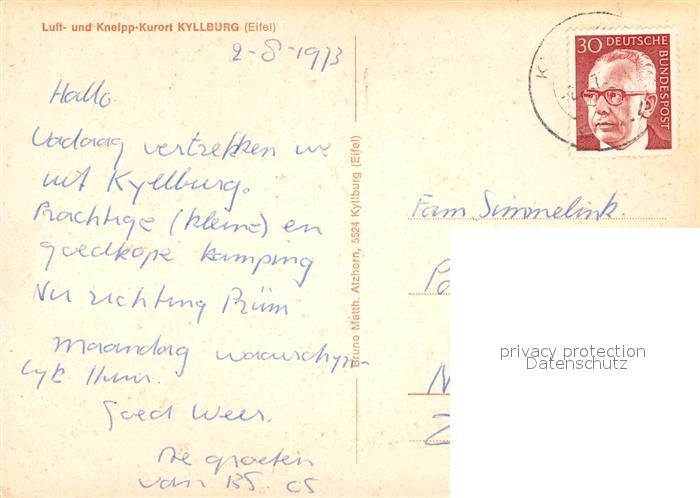 Luft- und Kneipp-Kurort KYLLBURG (Eifel)
2-8-1973
Hallo.
Vadaag vertrekken we
uit Kyllburg.
Prachtige (kleine) en
goedkope kamping
Nu richting Prüm.
maandag waarschyn-
lyk thuis.
Goed Weer.
De groeten
van
Bruno Matth. Atzhorn, 5524 Kyllburg (Eifel)
30 DEUTSCHE
BUNDESPOST
Fam Simmelink.
privacy protection
Datenschutz